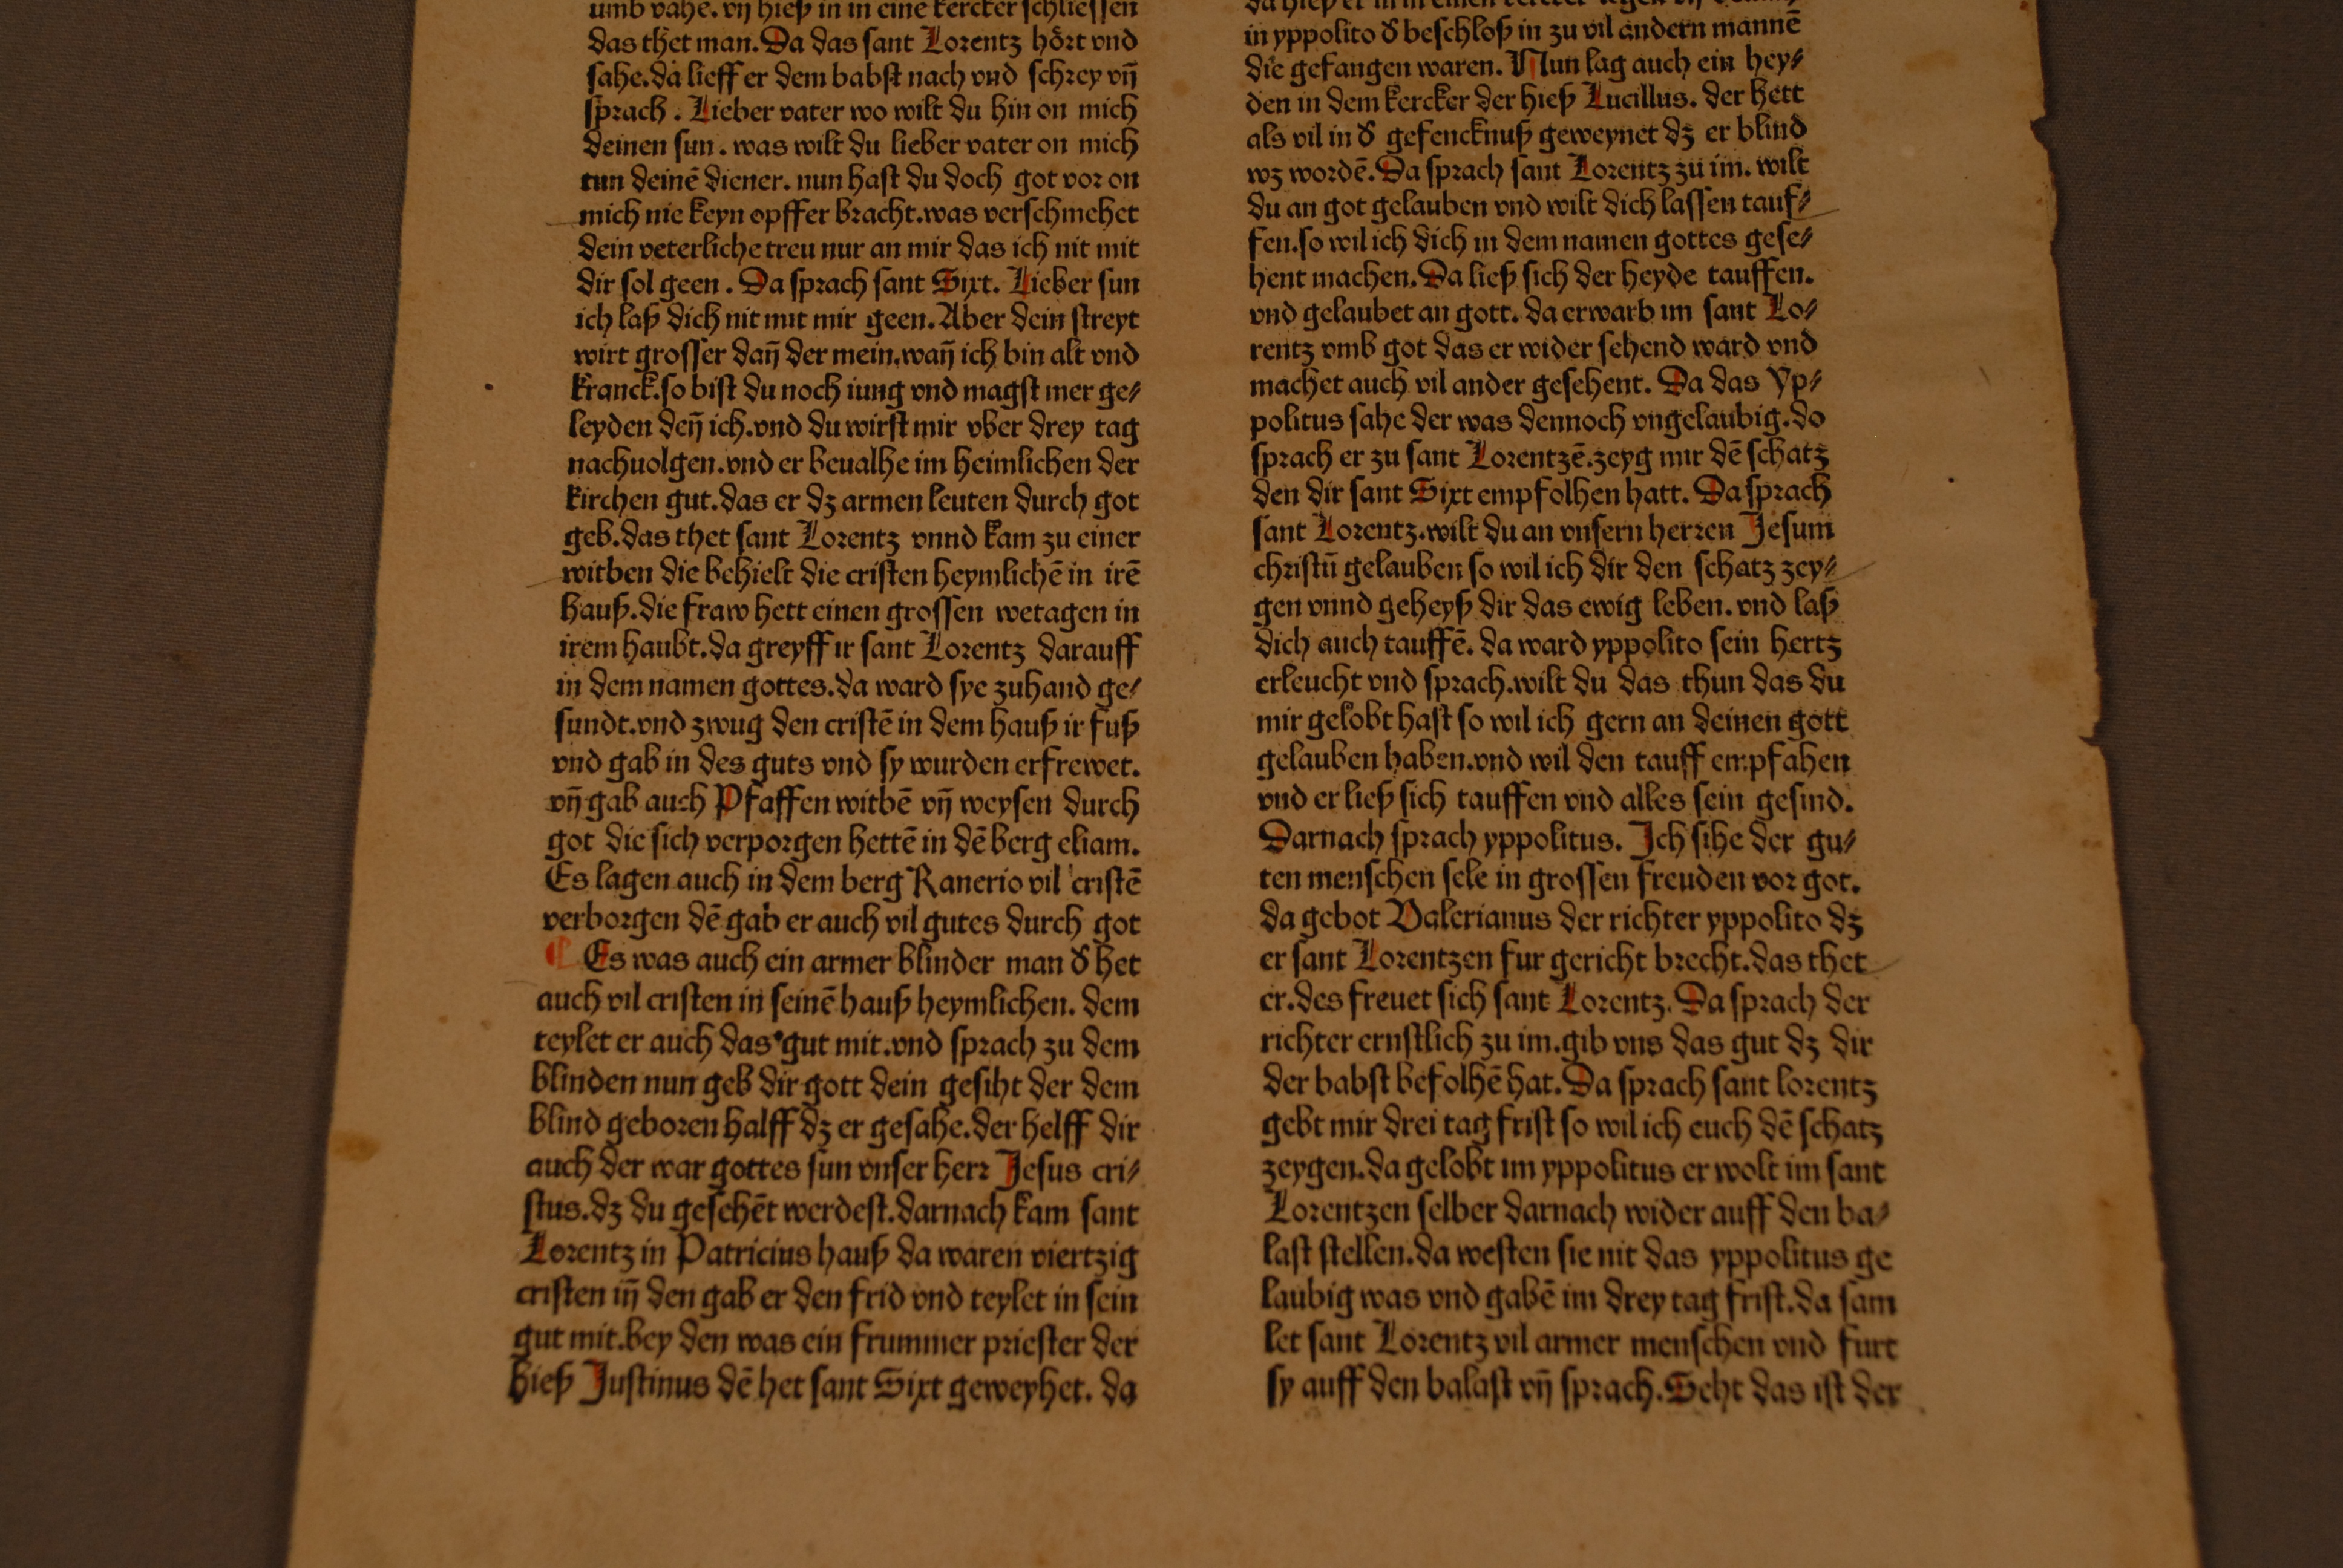 umb vahe. vn̄ hieß in in eine kercker schliessen
das thet man. Da das sant Lorentz hört vnd
sahe. da lieff er dem babst nach vnd schrey vn̄
sprach. Lieber vater wo wilt du hin on mich
deinen sun. was wilt du lieber vater on mich
tun deinē diener. nun hast du doch got vor on
mich nie keyn opffer bracht. was verschmehet
dein veterliche treu nur an mir das ich nit mit
dir sol geen. Da sprach sant Sixt. Lieber sun
ich laß dich nit mit mir geen. Aber dein streyt
wirt grosser dan̄ der mein. wan̄ ich bin alt vnd
kranck. so bist du noch iung vnd magst mer ge⸗
leyden den̄ ich. vnd du wirst mir vber drey tag
nachuolgen. vnd er beualhe im heimlichen der
kirchen gut. das er dz armen leuten durch got
geb. das thet sant Lorentz vnnd kam zu einer
witben die behielt die cristen heymlichē in irē
hauß. die fraw hett einen grossen wetagen in
irem haubt. da greyff ir sant Lorentz darauff
in dem namen gottes. da ward sye zuhand ge⸗
sundt. vnd zwug den cristē in dem hauß ir fuß
vnd gab in des guts vnd sy wurden erfrewet.
vn̄ gab auch Pfaffen witbē vn̄ weysen durch
got die sich verporgen hettē in dē berg eliam.
Es lagen auch in dem berg Ranerio vil cristē
verborgen dē gab er auch vil gutes durch got
¶ Es was auch ein armer blinder man d̄ het
auch vil cristen in seinē hauß heymlichen. dem
teylet er auch das gut mit. vnd sprach zu dem
blinden nun geb dir gott dein gesiht der dem
blind geboren halff dz er gesahe. der helff dir
auch der war gottes sun vnser herr Jesus cri⸗
stus. dz du gesehēt werdest. darnach kam sant
Lorentz in Patricius hauß da waren viertzig
cristen in̄ den gab er den frid vnd teylet in sein
gut mit. bey den was ein frummer priester der
hieß Justinus dē het sant Sixt geweyhet. da
in yppolito d̄ beschloß in zu vil andern mannē
die gefangen waren. Nun lag auch ein hey⸗
den in dem kercker der hieß Lucillus. der hett
als vil in d̄ gefencknuß geweynet dz er blind
wz wordē. Da sprach sant Lorentz zu im. wilt
du an got gelauben vnd wilt dich lassen tauf⸗
fen. so wil ich dich in dem namen gottes gese⸗
hent machen. Da ließ sich der heyde tauffen.
vnd gelaubet an gott. da erwarb im sant Lo⸗
rentz vmb got das er wider sehend ward vnd
machet auch vil ander gesehent. Da das Yp⸗
politus sahe der was dennoch vngelaubig. do
sprach er zu sant Lorentzē. zeyg mir dē schatz
den dir sant Sixt empfolhen hatt. Da sprach
sant Lorentz. wilt du an vnsern herren Jesum
christū gelauben so wil ich dir den schatz zey⸗
gen vnnd geheyß dir das ewig leben. vnd laß
dich auch tauffē. da ward yppolito sein hertz
erleucht vnd sprach. wilt du das thun das du
mir gelobt hast so wil ich gern an deinen gott
gelauben haben. vnd wil den tauff empfahen
vnd er ließ sich tauffen vnd alles sein gesind.
Darnach sprach yppolitus. Ich sihe der gu⸗
ten menschen sele in grossen freuden vor got.
da gebot Valerianus der richter yppolito dz
er sant Lorentzen fur gericht brecht. das thet
er. des freuet sich sant Lorentz. Da sprach der
richter ernstlich zu im. gib vns das gut dz dir
der babst befolhē hat. Da sprach sant lorentz
gebt mir drei tag frist so wil ich euch dē schatz
zeygen. da gelobt im yppolitus er wolt im sant
Lorentzen selber darnach wider auff den ba⸗
last stellen. da westen sie nit das yppolitus ge
laubig was vnd gabē im drey tag frist. da sam
let sant Lorentz vil armer menschen vnd furt
sy auff den balast vn̄ sprach. Seht das ist der